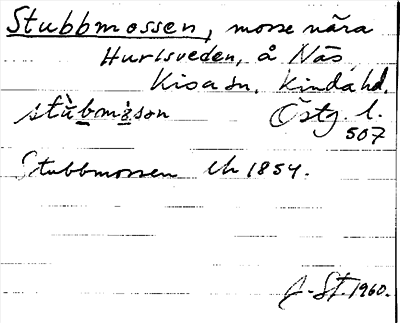 Stubbmossen, mosse nära
Hurlsveden, å Näs
Kisa sn. Kinda hd.
stùbmåsən Östg. l.
507
Stubbmossen Ek 1854.
J-St. 1960.